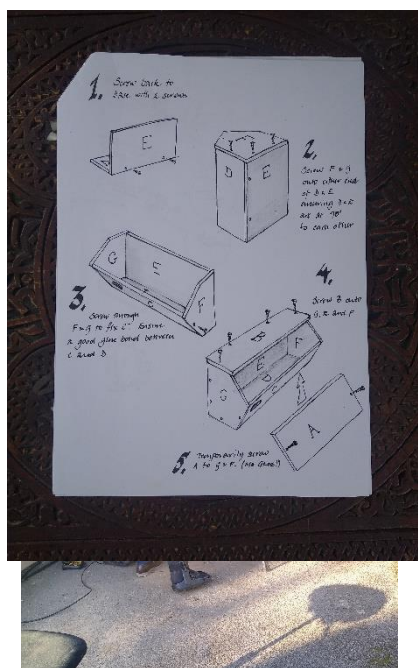 1. Screw back to
base with 2 screws
E
2.
Screw F & G
onto either end
of D & E
ensuring D & E
are at 90°
to each other
D E
G E F
3. Screw through
F & G to fix C. Ensure
a good glue bond between
C and D
4.
Screw B onto
G, E and F
B
E F
D
C
G
A
5. Temporarily screw
A to G & F. (No Glue!)